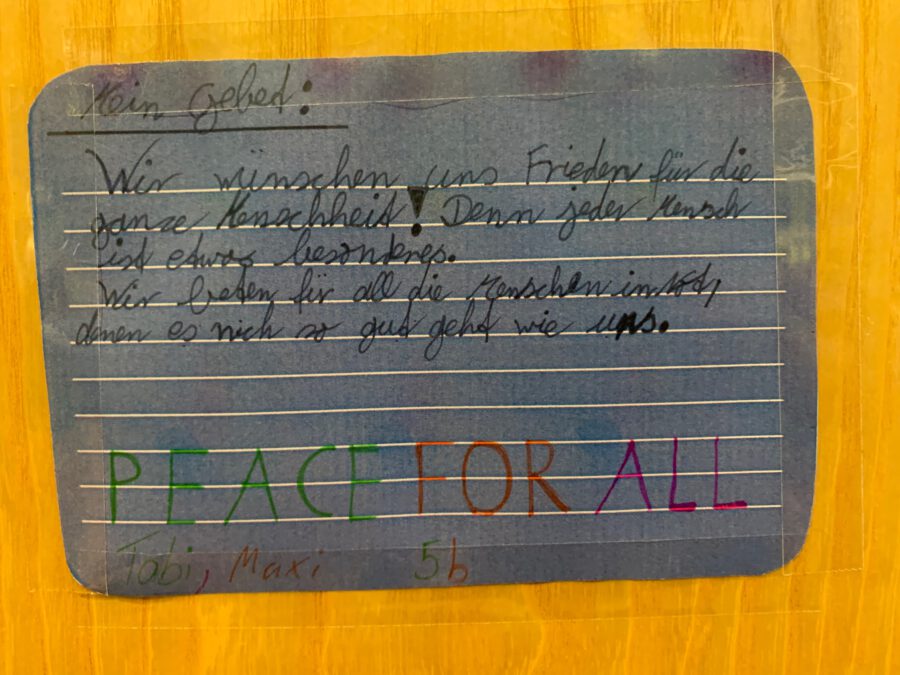 Mein Gebet:
Wir wünschen uns Frieden für die
ganze Menschheit! Denn jeder Mensch
ist etwas besonderes.
Wir beten für all die Menschen in Not,
denen es nich so gut geht wie uns.
PEACE FOR ALL
Tabi, Maxi 5b